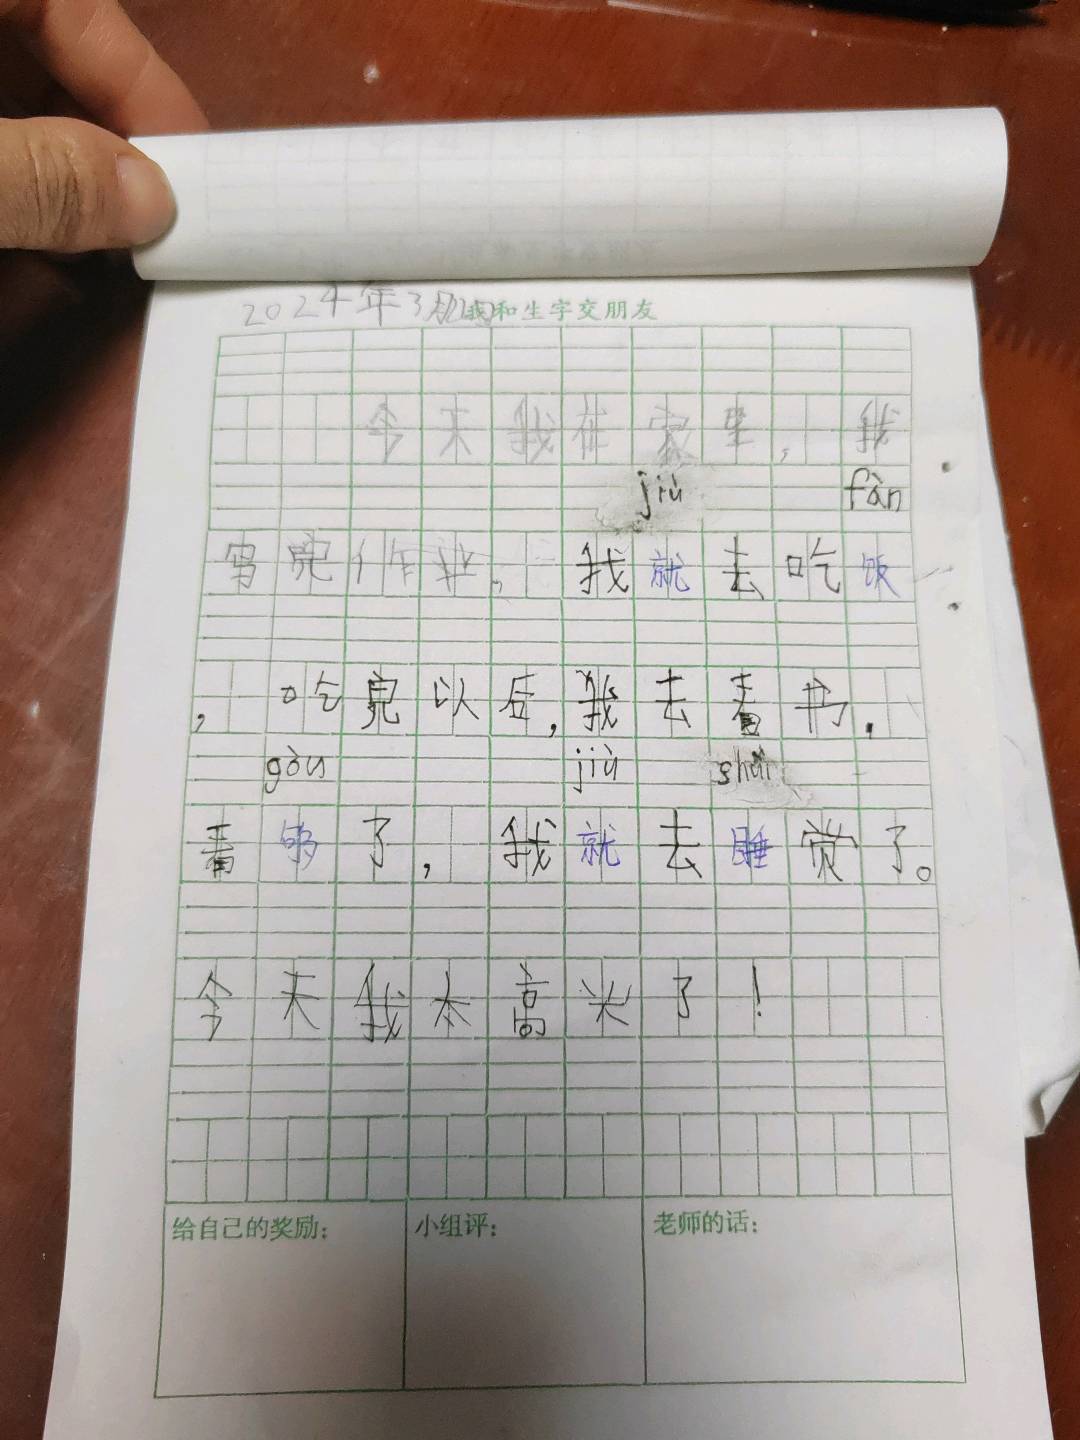 2024年3月
我和生字交朋友
今天我在家里,我
jiù fàn
写完作业,我就去吃饭
,吃完以后,我去看书.
gòu jiù shuì
看够了,我就去睡觉了。
今天我本高兴了!
给自己的奖励: 小组评: 老师的话: